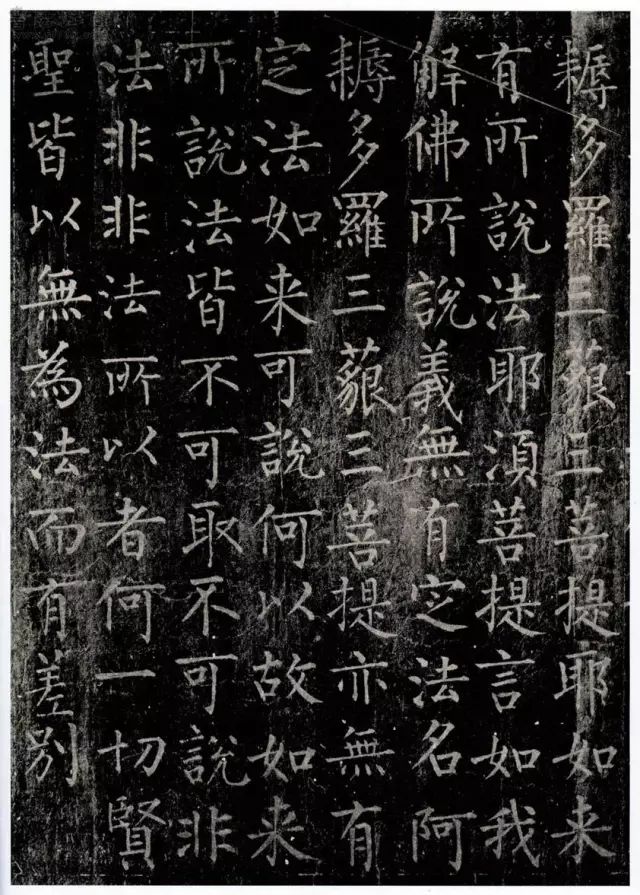 耨多羅三藐三菩提耶如来
有所說法耶湏菩提言如我
解佛所說義無有定法名阿
耨多羅三藐三菩提亦無有
定法如来可說何以故如来
所說法皆不可取不可說非
法非非法所以者何一切賢
聖皆以無為法而有差別